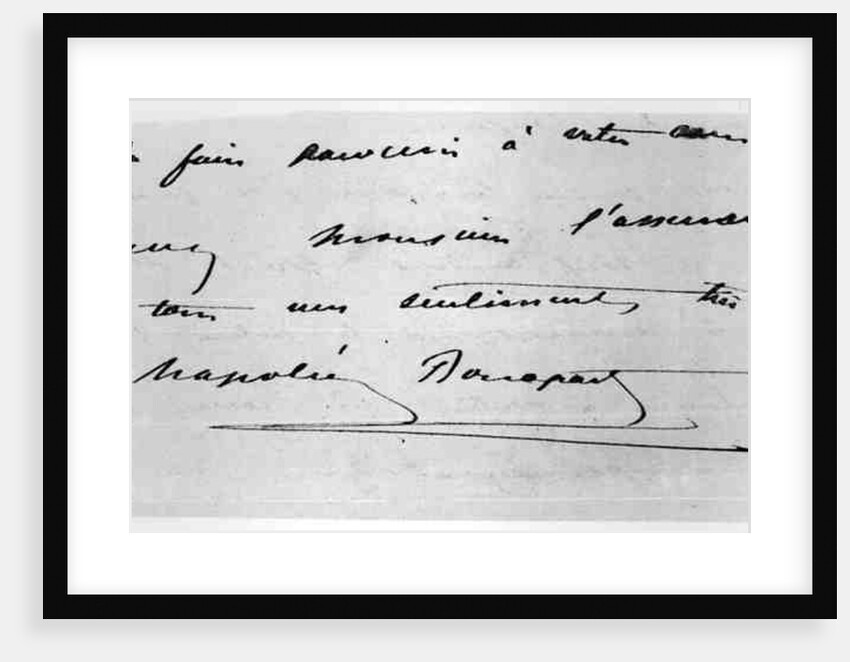 fais parvenir à votre
Monsieur l'assuran
tous mes sentiments très
Napoléon Bonaparte